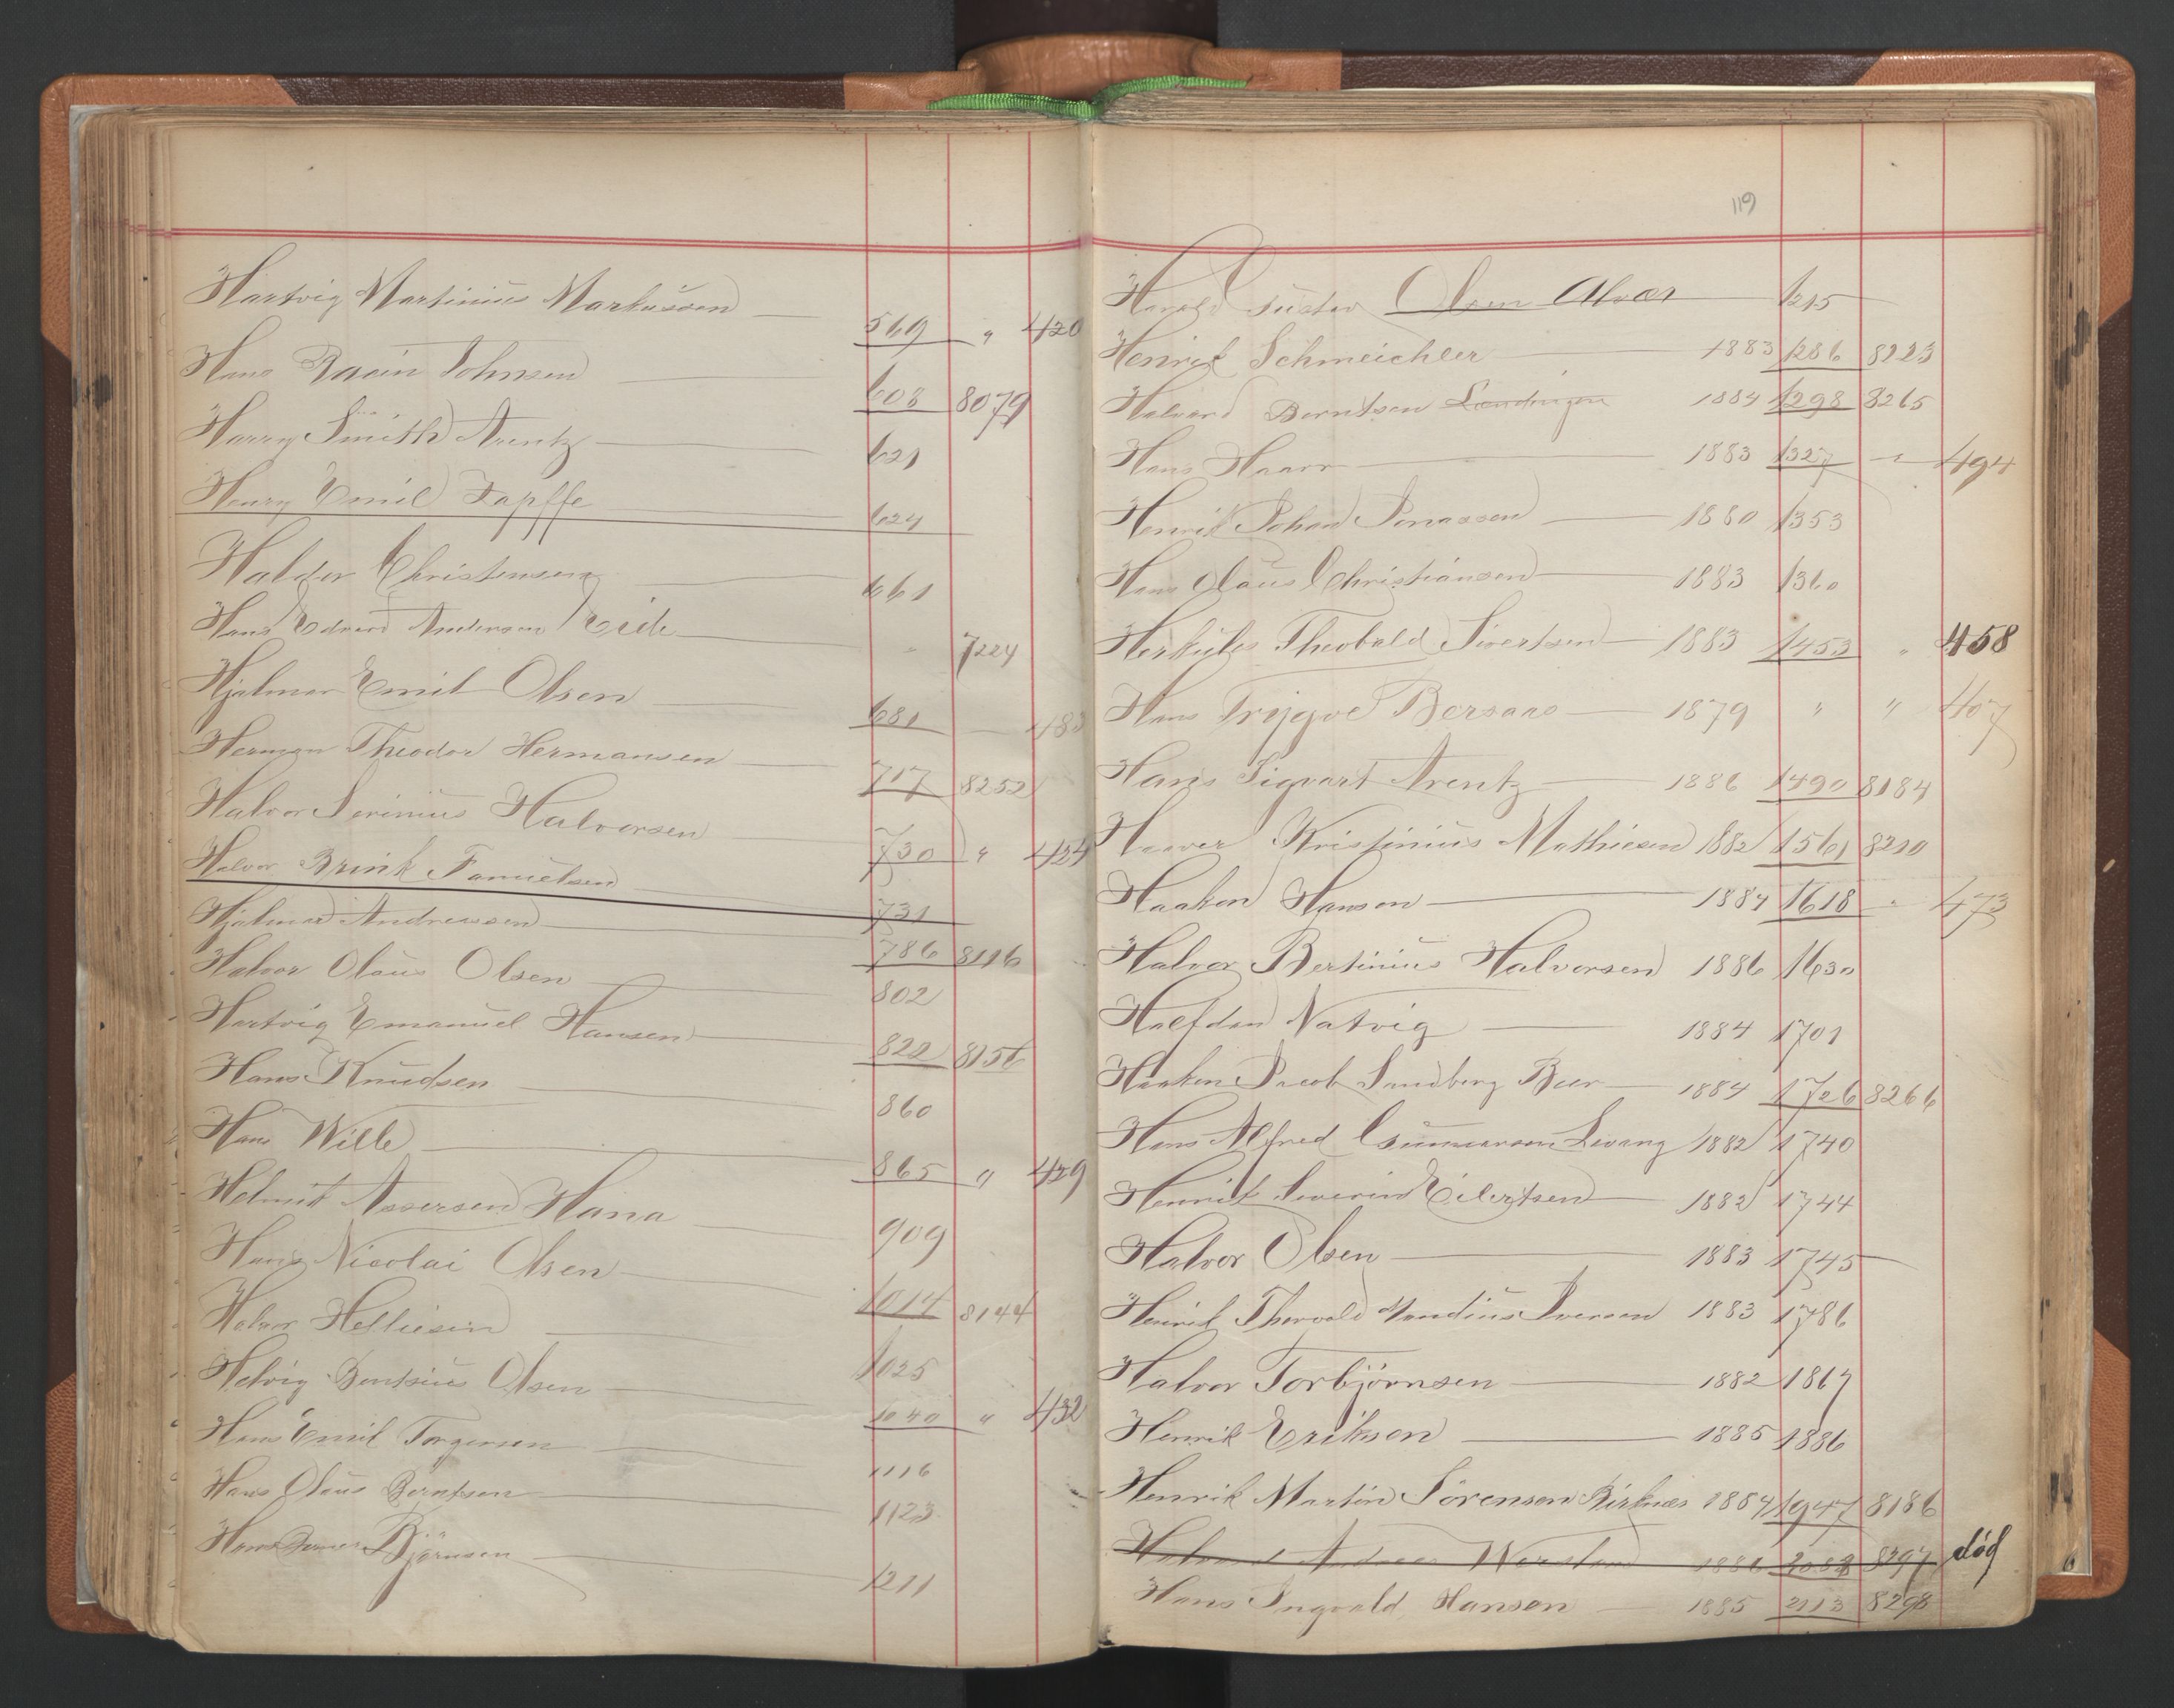 Hartvig Martinius Markussen — 569 " 420
Hans Johnsen — 608 8079
Harry Smith Arentz — 621
Henry Emil Zapffe — 624
Haldor Christensen — 661
Hans Edvard Andersen Eide — " 7224
Hjalmar Emil Olsen — 681 — 483
Herman Theodor Hermansen — 717 8252
Halvor Severinius Halvorsen — 730 " 424
Halvor Brink Samuelsen — 731
Hjalmar Andreassen — 786 8116
Halvor Olaus Olsen — 802
Hartvig Emanuel Hansen — 822 8156
Hans Knudsen — 860
Hans Wille — 865 " 429
Helmik Assersen Hana — 909
Hans Nicolai Olsen — 1014 8144
Halvor Helliesen — 1025
Helvig Bentsius Olsen — 1040 " 432
Hans Emil Torgersen — 1116
Hans Olaus Berntsen — 1123
Hans Bjørnsen — 1211
119
Harald Gustav Olsen Alvær — 1215
Henrik Schmeichler — 1883 1286 8223
Halvard Berntsen Lændingen 1884 1298 8265
Hans Haarr — 1883 1327 " 494
Henrik Johan Jonassen — 1880 1353
Hans Olaus Christiansen — 1883 1360
Herkules Theobald Sivertsen — 1883 1453 " 458
Hans Trygve Bersaas — 1879 " " 407
Hans Sigvart Arentz — 1886 1490 8184
Haaver Kristinius Mathiesen 1882 1561 8210
Haakon Hansen — 1884 1618 " 473
Halvor Bertinius Halvorsen 1886 1630
Halfdan Natvig — 1884 1701
Haakon Jacob Sandberg Beer — 1884 1726 8266
Hans Alfred Gunnarsen Levang 1882 1740
Henrik Severin Eilertsen — 1882 1744
Halvor Olsen — 1883 1745
Henrik Thorvald Mandius Iversen 1883 1786
Halvor Torbjørnsen — 1882 1867
Henrik Eriksen — 1885 1886
Henrik Martin Sørensen Birknes 1884 1947 8186
Halvard Andreas 1886 2084 8297 død
Hans Ingvald Hansen — 1885 2113 8298